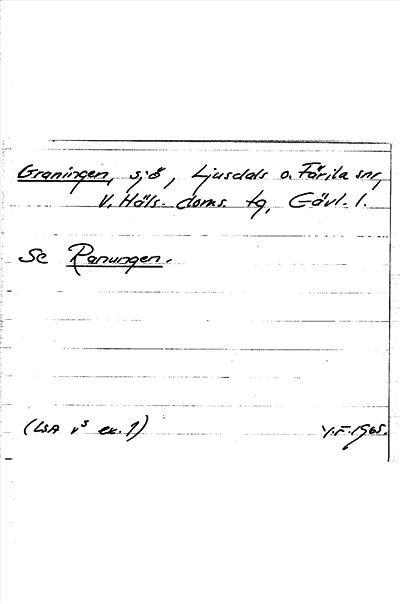 Graningen, sjö, Ljusdals o. Färila snr,
V. Häls. doms. tg, Gävl. l.
Se Ranungen.
(LSA v³ ex. 1) Y.F. 1965.